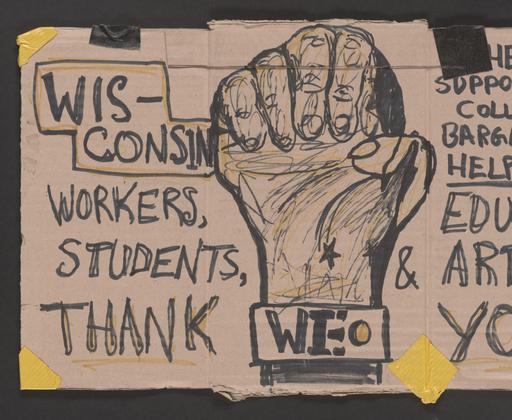 WIS-
CONSIN
WORKERS,
STUDENTS,
THANK
WEO
&
HE
SUPPO
COLL
BARGA
HELP
EDU
ART
YO